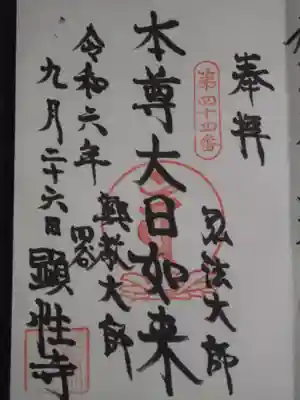 奉拝
第四十四番
弘法大師
本尊大日如来
興教大師
令和六年
九月二十六日
四谷
顕性寺